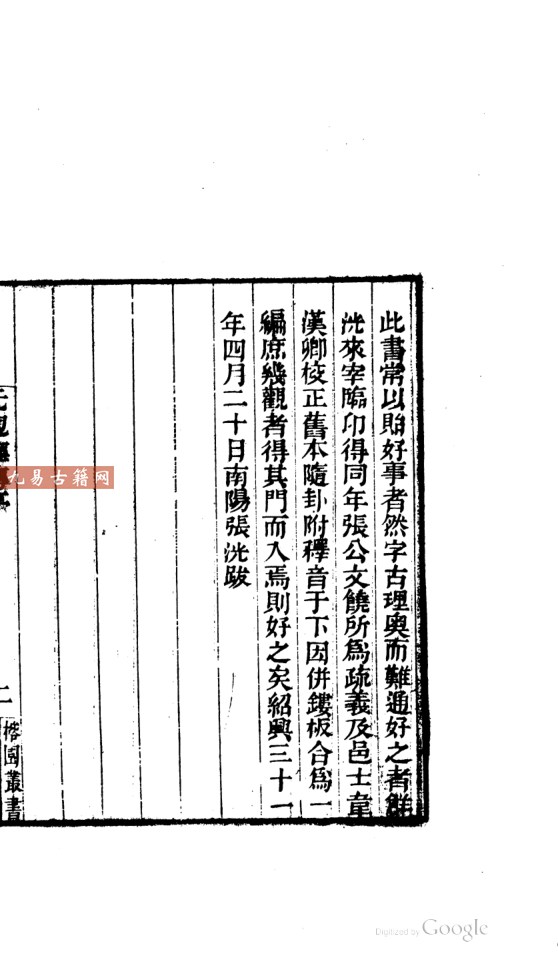 此書常以貽好事者然字古理奧而難通好之者鮮
洸來宰臨卬得同年張公文饒所為疏義及邑士韋
漢卿校正舊本隨卦附釋音于下因併鏤板合為一
編庶幾觀者得其門而入焉則好之矣紹興三十一
年四月二十日南陽張洸跋
二
榕園叢書
九易古籍网
Digitized by Google